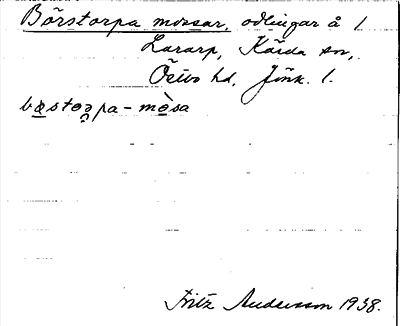 Börstorpa mossar, odlingar å 1
Lararp, Kärda sn,
Östbo hd, Jönk. l.
bœstorpa-mòsa
Fritz Andersson 1938.